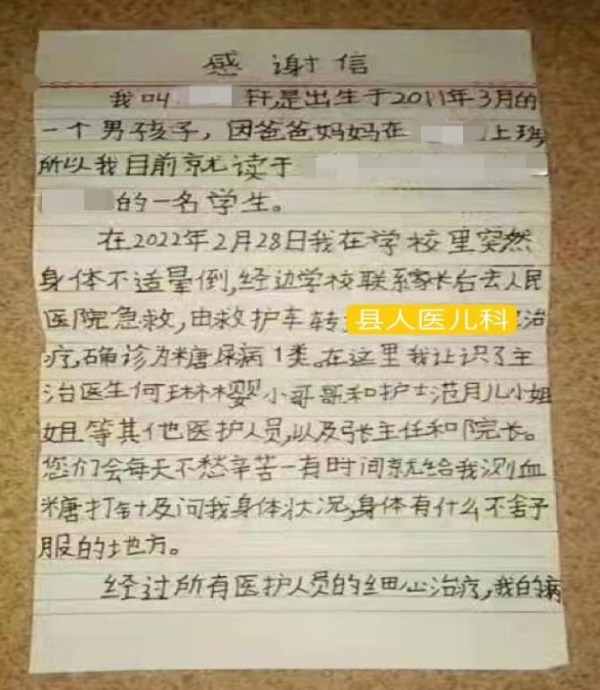 感谢信
我叫 轩,是出生于2011年3月的
一个男孩子,因爸爸妈妈在 上班
所以我目前就读于
的一名学生。
在2022年2月28日我在学校里突然
身体不适晕倒,经边学校联系家长后去人民
医院急救,由救护车转 县人医儿科 治
疗,确诊为糖尿病1类。在这里我让识了主
治医生何琳樱小哥哥和护士范月儿小姐
姐等其他医护人员,以及张主任和院长。
您们会每天不愁辛苦一有时间就给我测血
糖打针及问我身体状况,身体有什么不舍予
服的地方。
经过所有医护人员的细心治疗,我的病